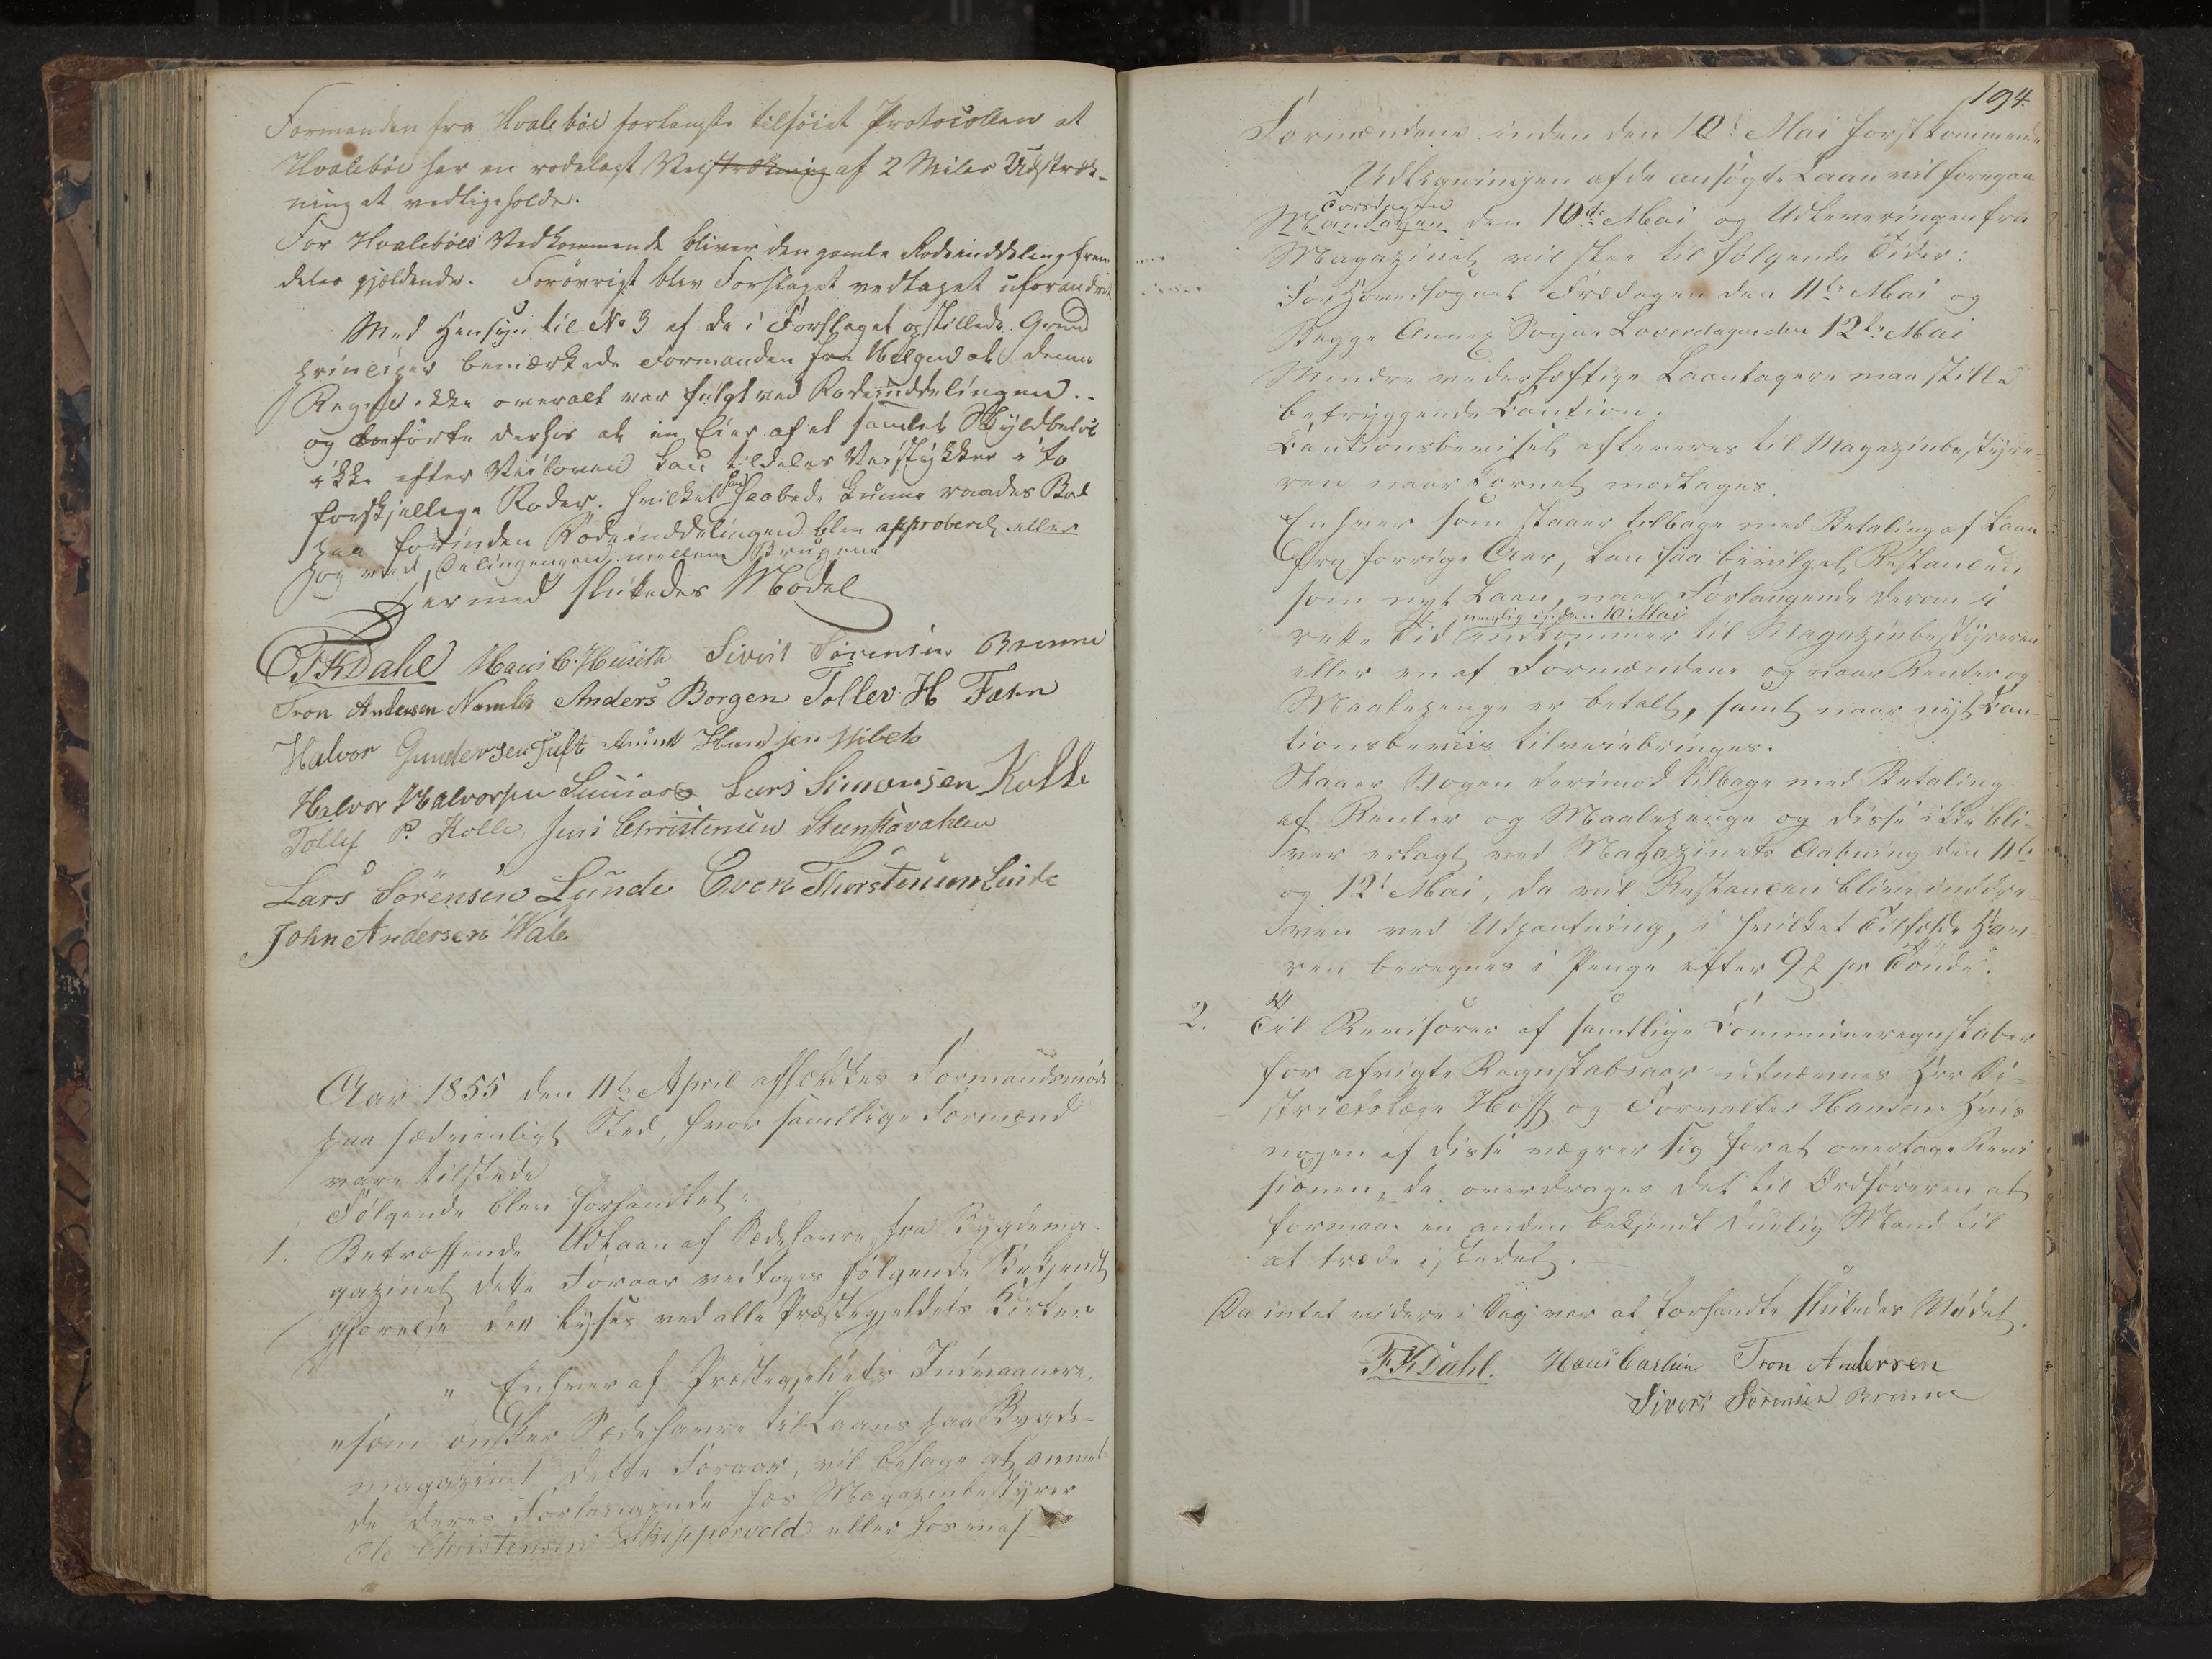 Formanden fra Hvalebøe forlangte tilføiet Protocollen at
Hvalebøe har en rodelagt Veistrækning af 2 Miles Udstræk-
ning at vedligeholde.
For Hvalebøes Vedkommende bliver den gamle Rodeinddeling frem
deles gjældende. Forøvrigt blev Forslaget vedtaget uforandret
Med Hensyn til No 3 af de i Forslaget opstillede Grund
principer bemærkede Formanden fra Helgend at denne
Regel ikke overalt var fulgt ved Rodeinddelingen.
og anførte derhos at en Eier af et samlet Skyldbeløb
ikke efter Veiloven kan tildeles Veistykker i to
forskjellige Roder. hvilket han haabede kunne raades Bod
paa forinden Rodeinddelingen blev approberet eller
og ved Delingen mellem Brugene
Hermed sluttedes Mødet
FKDahl Hans C. Huseth Sivert Sørensen Brenne
Tron Andersen Namløs Anders Borgen Tollev H Fæhn
Halvor Gundersen Juft Amund Hansen Hibeto
Halvor Halvorsen Lars Simonsen Kolle
Tollef P. Kolle, Jens Christensen Stenstavahlen
Lars Sörensen Lunde Even Thorstensen Linde
John Andersen Wale
Aar 1855 den 11te April afholdtes Formandsmøde
paa sædvanligt Sted, hvor samtlige Formænd
vare tilstede
Følgende blev forhandlet:
1. Betræffende Udlaan af Sædehavre fra Bygdema-
gazinet dette Foraar vedtoges følgende Bekjendt
gjørelse der lyses ved alle Præstegjeldets Kirker
" Enhver af Præstegjeldets Indvaanere,
"som ønsker Sædehavre tillaans paa Bygde-
magazinet dette Foraar, vil behage at anmel-
de deres Forlangende hos Magazinbestyrer
Ole Christensen Skippervold eller hos en af
194.
Formændene inden den 10de Mai førstkommende
Udligningen af de ansøgte Laan vil foregaa
Torsdagen
Mandagen den 10de Mai og Udleveringen fra
Magazinet vil skee til følgende Tider:
For Hovedsognet Fredagen den 11te Mai og
Begge Annex Sogne Løverdagen den 12te Mai
Mindre vederhæftige Laantagere maa stille
betryggende Caution.
Cautionsbeviset afleveres til Magazinbestyre-
ren naar Kornet modtages.
Enhver som staaer tilbage med Betaling af Laan
fra forrige Aar, kan faa bevilget Restancen
som nyt Laan, naar Forlangende derom i
nemlig inden 10 Mai
rette Tid indkommer til Magazinbestyreren
eller en af Formændene og naar Renter og
Maalepenge er betalt, samt naar nyt Cau-
tionsbevis tilveiebringes.
Staaer Nogen derimod tilbage med Betaling
af Renter og Maalepenge og disse ikke bli-
ver erlagt ved Magazinets Aabning den 11te
og 12te Mai, da vil Restancen blive inddre-
ven ved Udpantning, i hvilket Tilfælde Hav-
ren beregnes i Penge efter 9 pr Tønde.
2. Til Revisorer af samtlige Communeregnskaber
for afvigte Regnskabsaar udnævnes Hrr Di-
strictslæge Hoff og Forvalter Hansen. Hvis
nogen af disse vægrer sig for at overtage Revi
sionen, da overdrages det til Ordføreren at
formaa en anden bekjendt duelig Mand til
at træde istedet.
Da intet videre i Dag var at forhandle sluttedes Mødet.
FKDahl. Hans Carlsen Tron Andersen
Sivert Sørensen Brenne